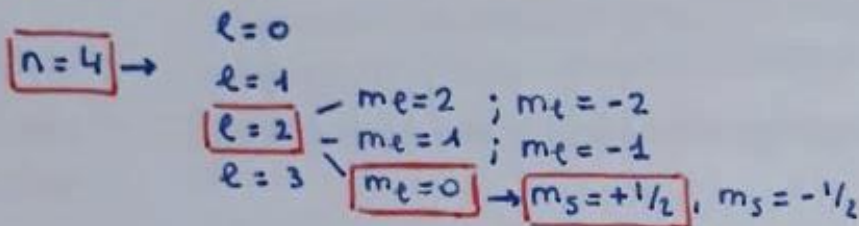 ℓ=0
n=4 → ℓ=1
ℓ=2 – mℓ=2 ; mℓ=-2
– mℓ=1 ; mℓ=-1
ℓ=3 \ mℓ=0 → ms=+1/2, ms=-1/2